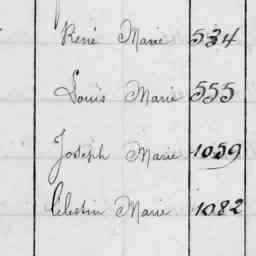 René Marie 534
Louis Marie 555
Joseph Marie 1059
Célestin Marie 1082